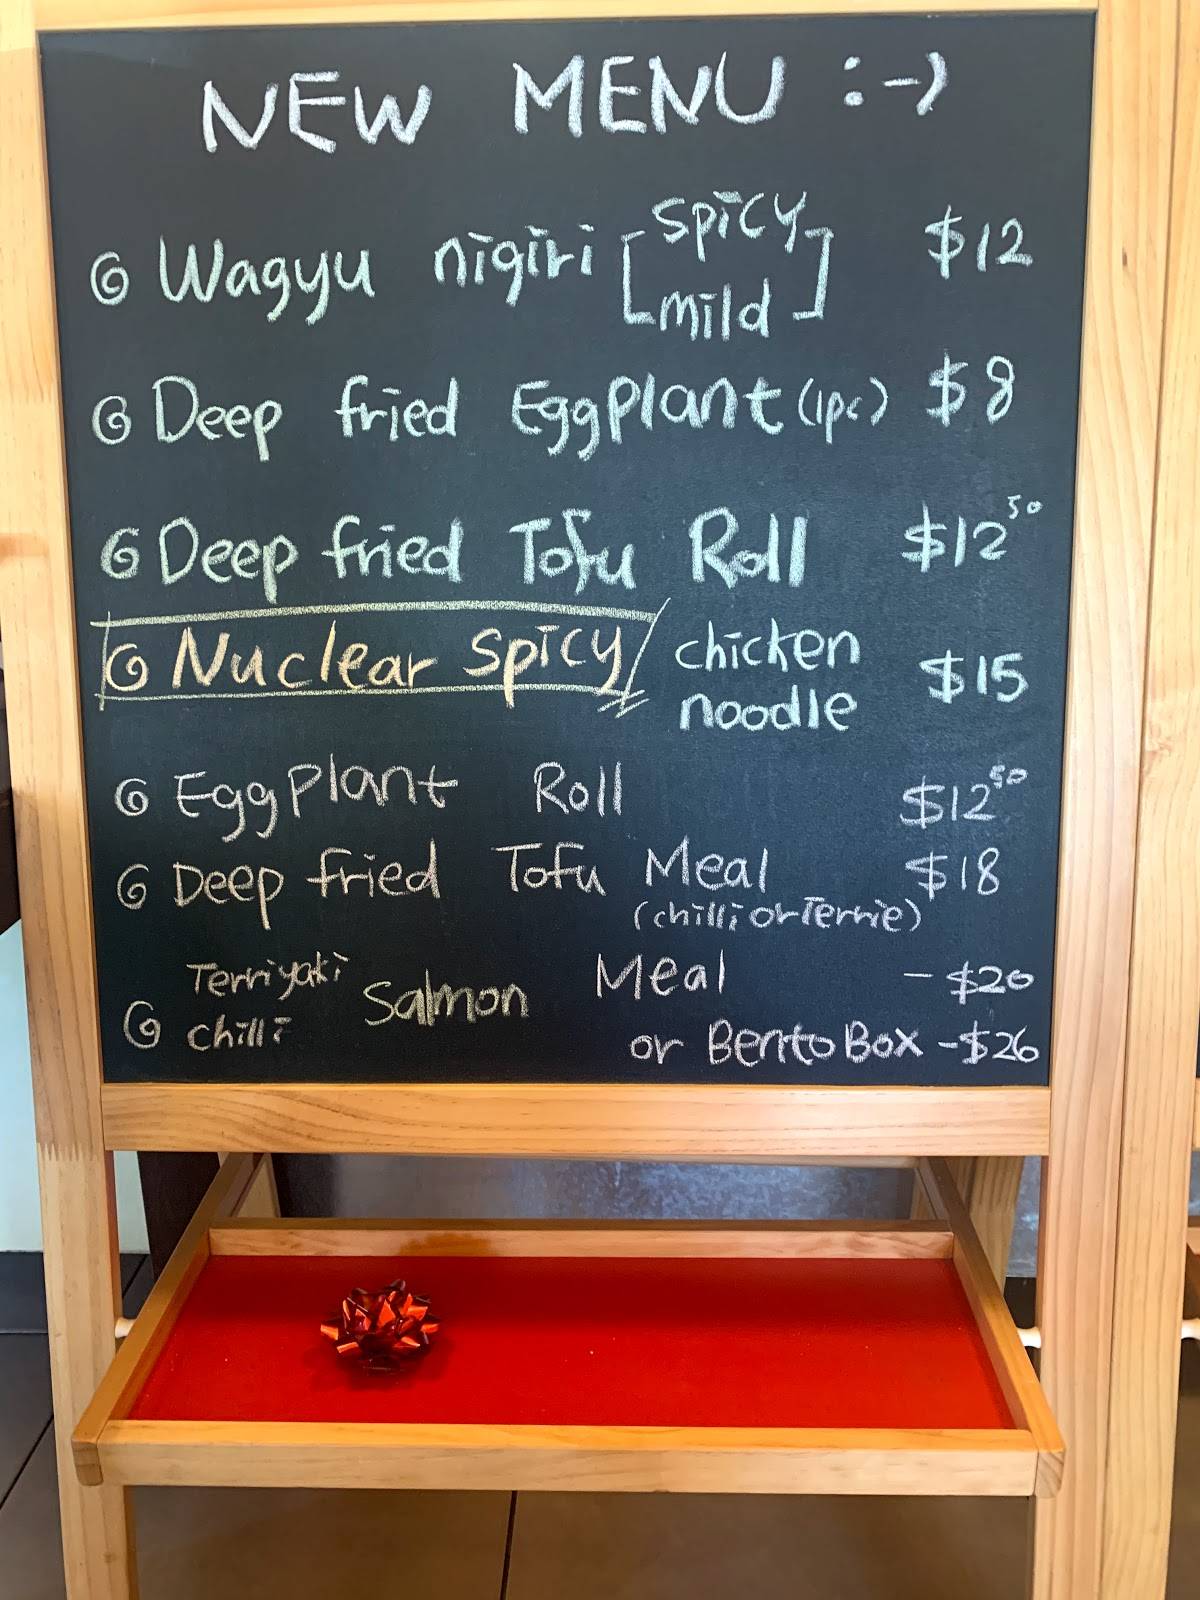 NEW MENU :-)
Wagyu nigiri [spicy mild] $12
Deep fried Eggplant (1pc) $8
Deep fried Tofu Roll $12 50
Nuclear spicy chicken noodle $15
Eggplant Roll $12 50
Deep fried Tofu Meal $18
(chilli or Terrie)
Terriyaki chilli Salmon Meal - $20
or Bento Box - $26